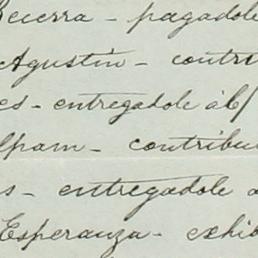 Becerra - pagadole
Agustín - contri
es - entregadole á b/
lpam - contribu
s - entregadole a
Esperanza - exhib